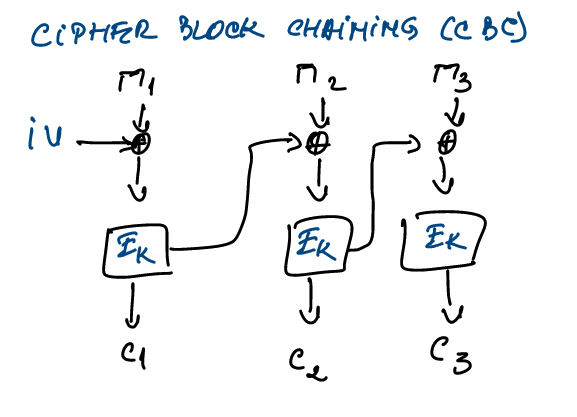 CIPHER BLOCK CHAINING (CBC)
M1 M2 M3
iv
EK EK EK
C1 C2 C3